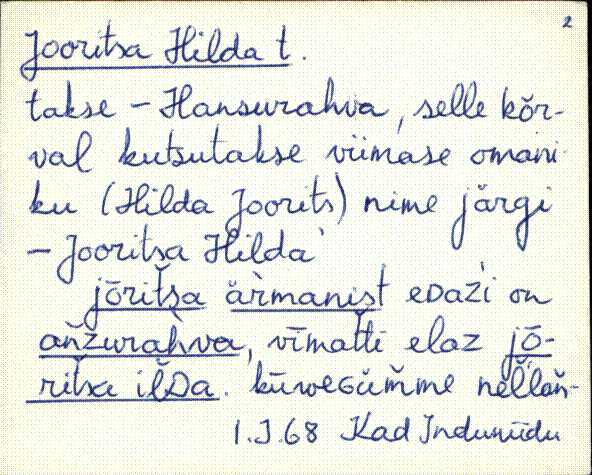 2
Jooritsa Hilda t.
takse – Hansurahva, selle kõr-
val kutsutakse viimase omani-
ku (Hilda Joorits) nime järgi
– Jooritsa Hilda
jōritsa ärmanist edaźi on
añžurahva, vīmatti elaz jō-
ritsa ilDa.
1.I.68